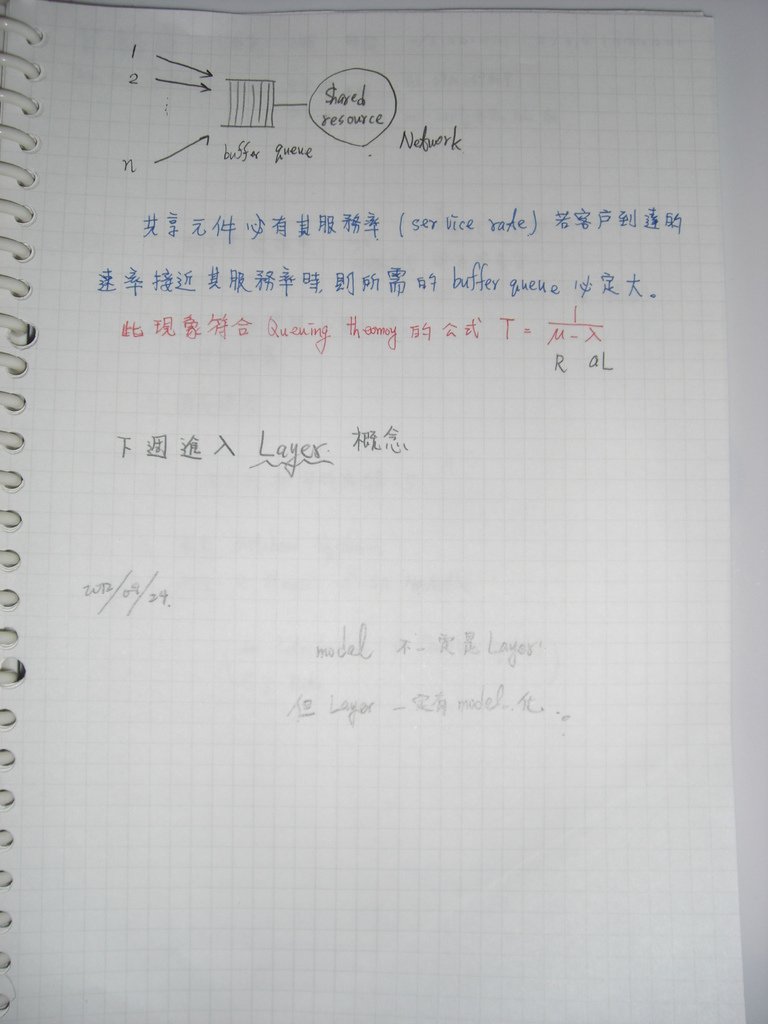 1
2
n
buffer queue
Shared
resource
Network
共享元件必有其服務率 (service rate) 若客戶到達的
速率接近其服務率時,則所需的 buffer queue 必定大。
此現象符合 Queuing theomoy 的公式 T = 1/(μ - λ)
R aL
下週進入 Layer 概念
2012/09/24.
modal 不一定是 Layer
但 Layer 一定有 model 化...。